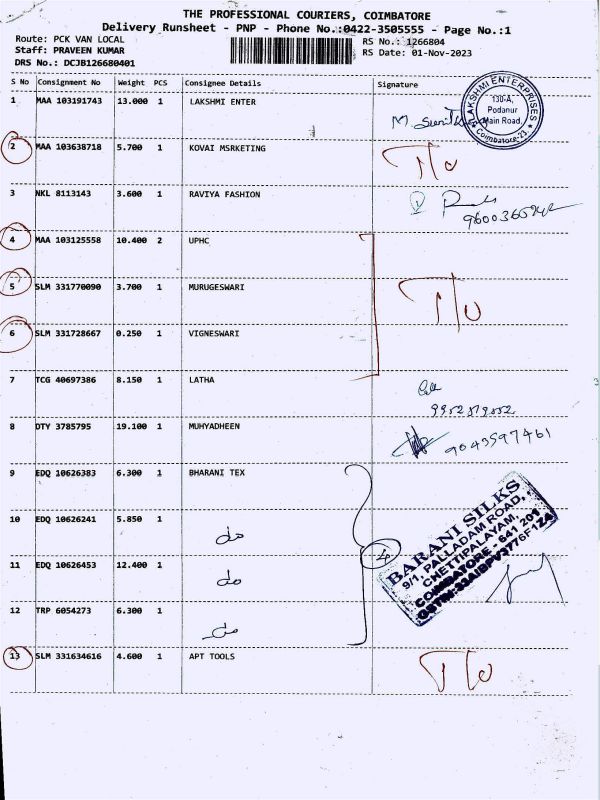 THE PROFESSIONAL COURIERS, COIMBATORE
Delivery Runsheet - PNP - Phone No.:0422-3505555 - Page No.:1
Route: PCK VAN LOCAL
RS No.: 1266804
Staff: PRAVEEN KUMAR
RS Date: 01-Nov-2023
DRS No.: DCJB126680401
S No Consignment No Weight PCS Consignee Details Signature
1 MAA 103191743 13.000 1 LAKSHMI ENTER
LAKSHMI ENTERPRISES
130-A,
Podanur
Main Road,
Coimbatore-23.
2 MAA 103638718 5.700 1 KOVAI MSRKETING T/o
3 NKL 8113143 3.600 1 RAVIYA FASHION
4 MAA 103125558 10.400 2 UPHC
5 SLM 331770090 3.700 1 MURUGESWARI T/o
6 SLM 331728667 0.250 1 VIGNESWARI
7 TCG 40697386 8.150 1 LATHA
8 DTY 3785795 19.100 1 MUHYADHEEN
9043597461
9 EDQ 10626383 6.300 1 BHARANI TEX
10 EDQ 10626241 5.850 1 do
11 EDQ 10626453 12.400 1 do
12 TRP 6054273 6.300 1 do
4
BARANI SILKS
9/1, PALLADAM ROAD,
CHETTIPALAYAM,
COIMBATORE - 641 201
13 SLM 331634616 4.600 1 APT TOOLS T/o